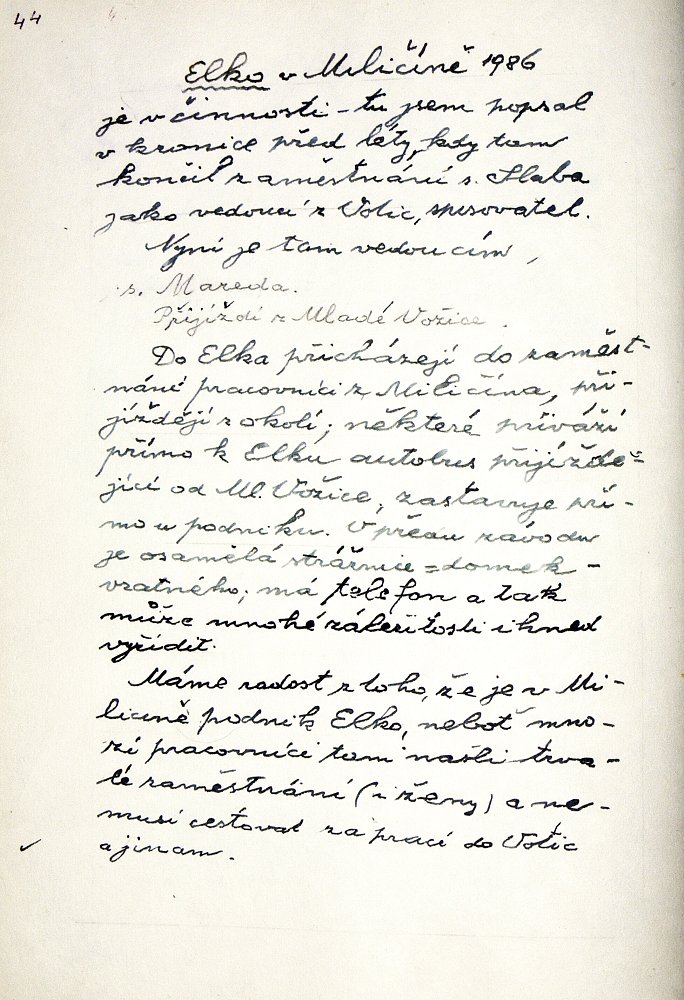 44
Elko v Miličíně 1986
je v činnosti - tu jsem popsal
v kronice před léty, kdy tam
končil zaměstnání s. Slaba
jako vedoucí z Votic, spisovatel.
Nyní je tam vedoucím,
s. Mareda.
Přijíždí z Mladé Vožice.
Do Elka přicházejí do zaměst-
nání pracovníci z Miličína, při-
jíždějí z okolí; některé přiváží
přímo k Elku autobus přijížde-
jící od Ml. Vožice, zastavuje pří-
mo u podniku. Vpředu závodu
je osamělá strážnice = domek -
vratného; má telefon a tak
může mnohé záležitosti ihned
vyřídit.
Máme radost z toho, že je v Mi-
ličíně podnik Elko, neboť mno-
zí pracovníci tam našli trva-
lé zaměstnání (i ženy) a ne-
musí cestovat za prací do Votic
a jinam.